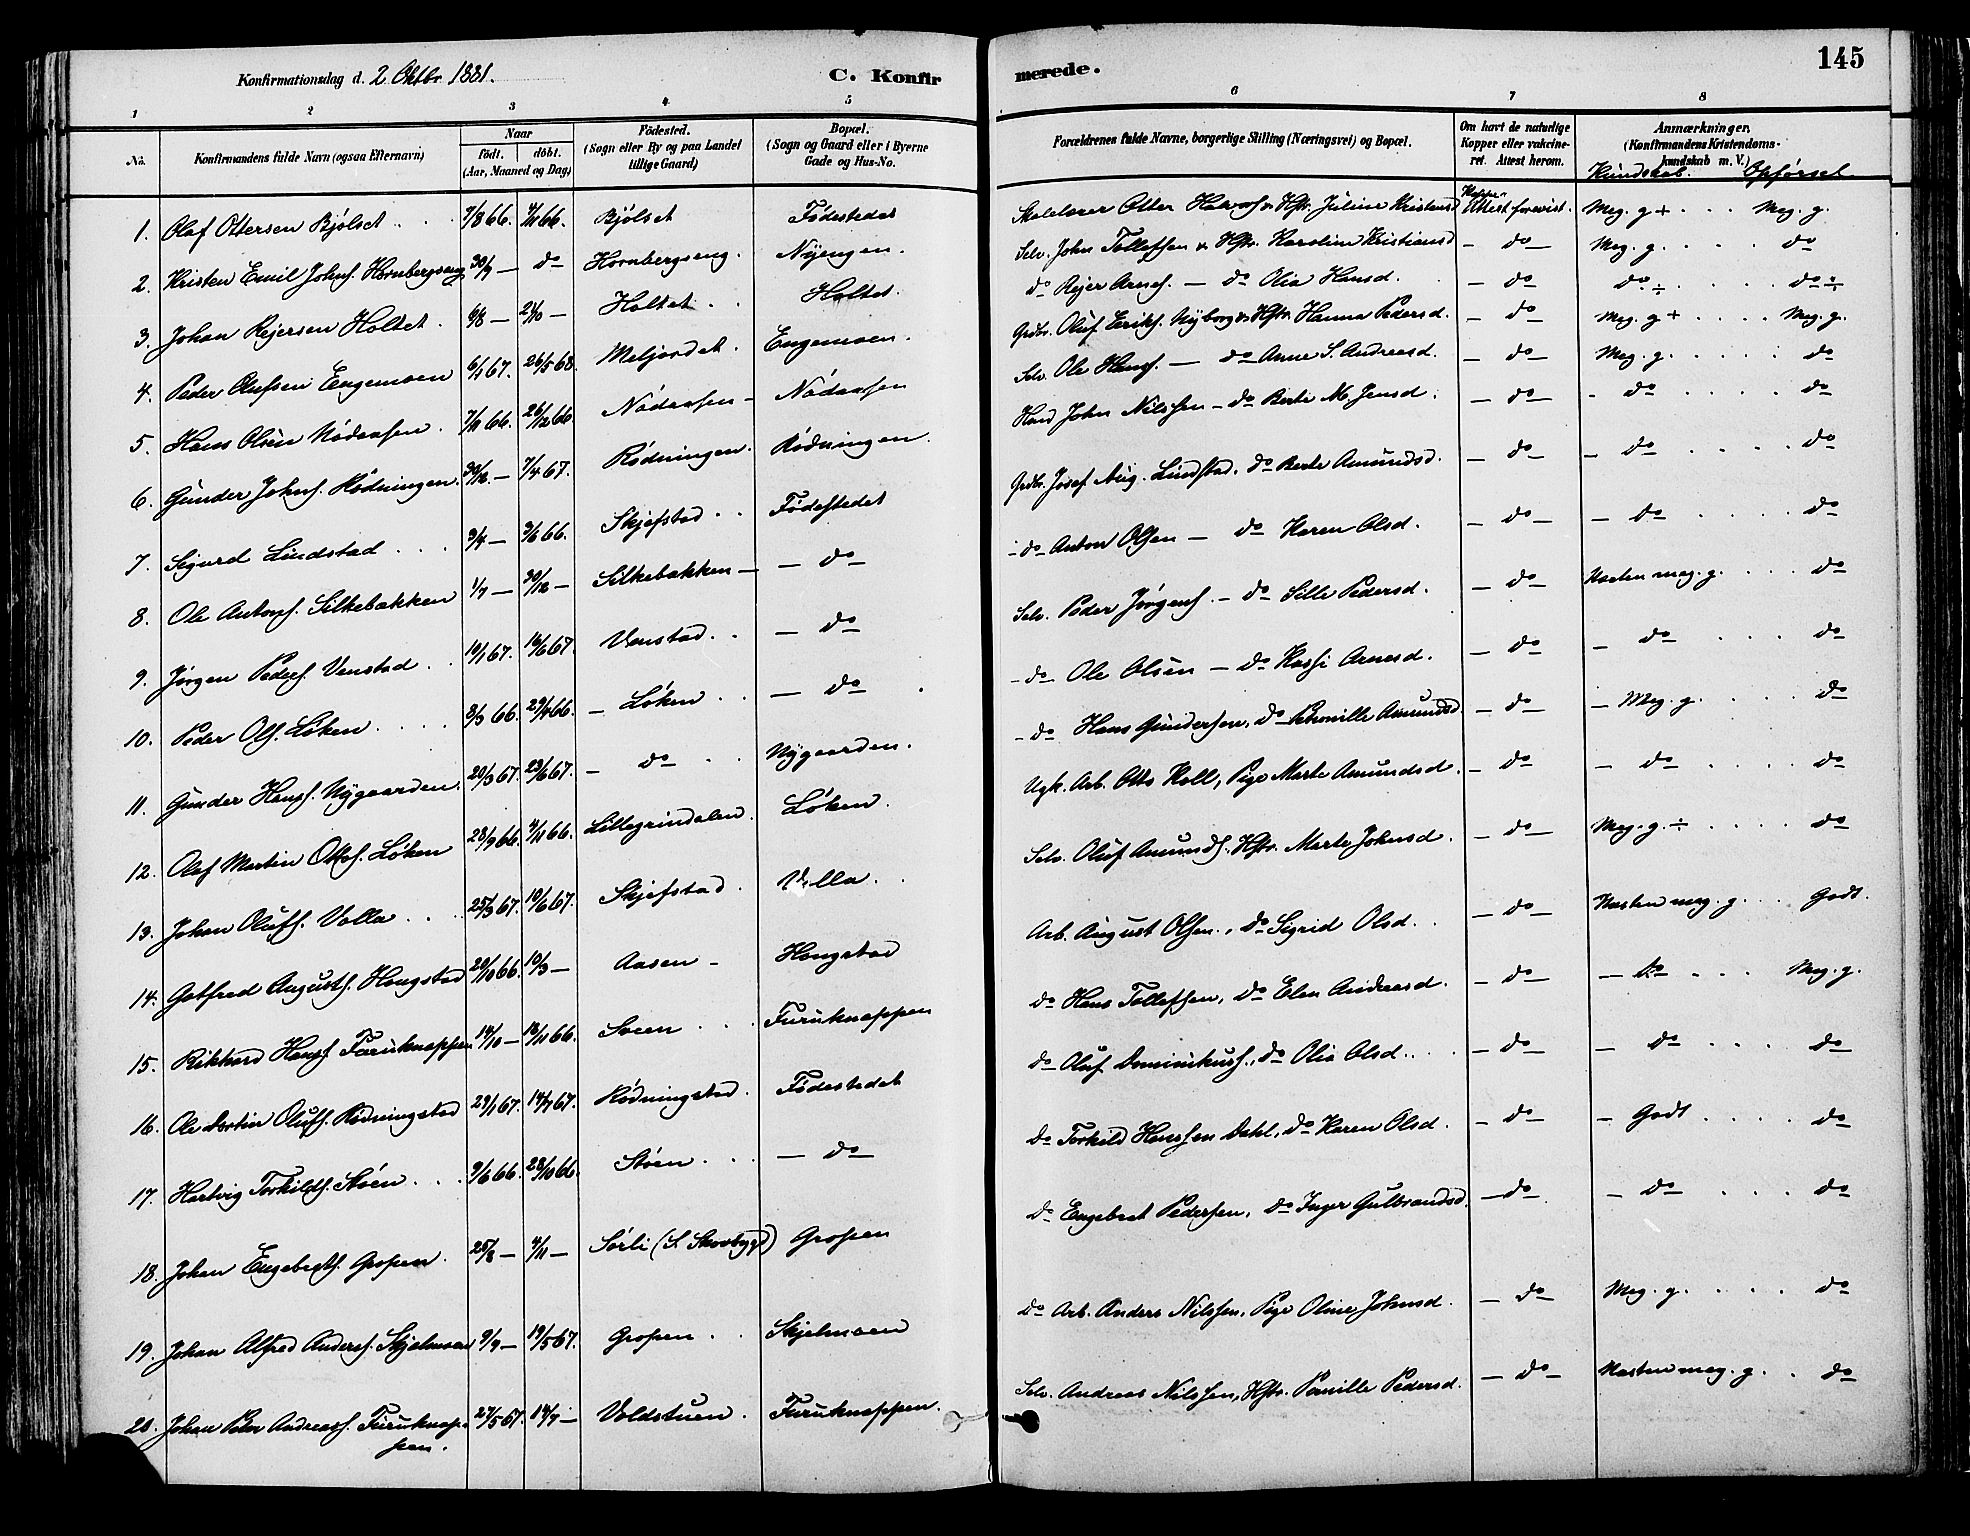 Konfirmationsdag d. 2 Oktbr. 1881.
C. Konfir
merede.
145
1 2 3 4 5 6 7 8
No.
Konfirmandens fulde Navn (ogsaa Efternavn)
Naar
födt. döbt.
(Aar, Maaned og Dag)
Födested.
(Sogn eller By og paa Landet
tillige Gaard)
Bopæl.
(Sogn og Gaard eller i Byerne
Gade og Hus-No.
Forældrenes fulde Navne, borgerlige Stilling (Næringsvei) og Bopæl.
Om havt de naturlige
Kopper eller vakcine-
ret. Attest herom.
Anmærkninger.
(Konfirmandens Kristendoms-
kundskab m. V.)
Kundskab. Opførsel
1. Olaf Ottersen Bjölset 7/8 66. 4/11 66. Bjölset Födestedet Skolelærer Otter Halvors. Hstr. Juline Kristensd Attest forevist. Meg. g + Meg. g.
2. Kristen Emil Johns. Hornbergseng 30/9 — do Hornbergseng. Nyengen. Selv. John Tollefsen & Hstr. Karoline Kristiansd — do — Meg. g. do
3. Johan Rejersen Holtet. 6/8 — 21/10 — Holtet. Holtet. do Rejer Arnes. — do Olia Hansd. — do do ÷ do ÷
4. Peder Olufsen Engemoen 6/1 67. 26/5 68. Meljordet. Engemoen. Grdbr. Oluf Eriks. Nyborg & Hstr. Hanna Pedersd. — do — Meg. g + Meg. g.
5. Hans Olsen Nödaasen. 7/11 66. 26/12 66. Nödaasen — Nödaasen Selv. Ole Hans. — do Anne S. Andreasd. — do — Meg. g. do
6. Gunder Johns. Rödningen. 30/12 — 7/4 67. Rödningen. Rödningen. Husd John Nilssen — do Berte M. Jensd. — do — do do
7. Sigurd Lindstad 9/4 — 3/6 66. Skjefstad. Födestedet Grdbr. Josef Aug. Lindstad, do Berte Amundsd. — do — — do do
8. Ole Antons. Silkebakken 1/7 — 30/12 — Silkebakken — — do — do Anton Olsen — do Karen Olsd. — do — — do do
9. Jörgen Peders. Venstad. 10/1 67. 16/6 67. Venstad. — do Selv. Peder Jörgens. — do Sille Pedersd. — do Næsten meg. g. do
10. Peder Ols. Löken. 8/3 66. 29/4 66. — Löken. — do — do Ole Olsen — do Kassi Arnesd. — do — — do do
11. Gunder Hans. Nygaarden. 20/3 67. 23/6 67. — do Nygaarden. — do Hans Gundersen, do Petronille Amundsd. — do — Meg. g. do
12. Olaf Martin Ottos. Löken 28/9 66. 4/11 66. Lillegrindalen. Löken. Ugk. Arb. Otto Koll, Pige Marte Amundsd. — do — do do
13. Johan Olufs. Volla 25/3 67. 10/6 67. Skjefstad. Volla. Selv. Oluf Amunds. Hstr. Marte Johnsd. — do — Meg. g. ÷ do
14. Gotfred Augusts. Hongstad 20/10 66. 10/3 — Aasen — Hongstad Arb. August Olsen., do Sigrid Olsd. — do — Næsten meg. g. Godt.
15. Rikhard Hans. Furuknappen 14/10 — 18/11 66. Sveen Furuknappen do Hans Tollefsen, do Elen Andreasd. — do — — do Meg. g.
16. Ole Martin Olufs. Rödningstad 29/1 67. 14/7 67. Rödningstad. Födestedet do Oluf Dominikus., do Olia Olsd. — do — — do do
17. Hartvig Torkilds. Stöen. 9/6 66. 28/10 66. Stöen. — do do Torkild Hanssen Dahl, do Karen Olsd. — do — — Godt do
18. Johan Engebrets. Gropen. 25/8 — 4/11 — Sörli (S. Skovbygd) Gropen do Engebret Pedersen, do Inger Gulbrandsd. — do — do do
19. Johan Alfred Anders. Skjelmoen 9/9 — 19/5 67. Gropen. Skjelmoen do Arb. Anders Nilssen, Pige Oline Johnsd. — do — Meg. g. do
20. Johan Peder Andreass. Furuknap- 27/5 67. 14/7 — Voldstuen. Furuknappen. Selv. Andreas Nilssen, Hstr. Pernille Pedersd. — do — Næsten meg. g. do
pen.